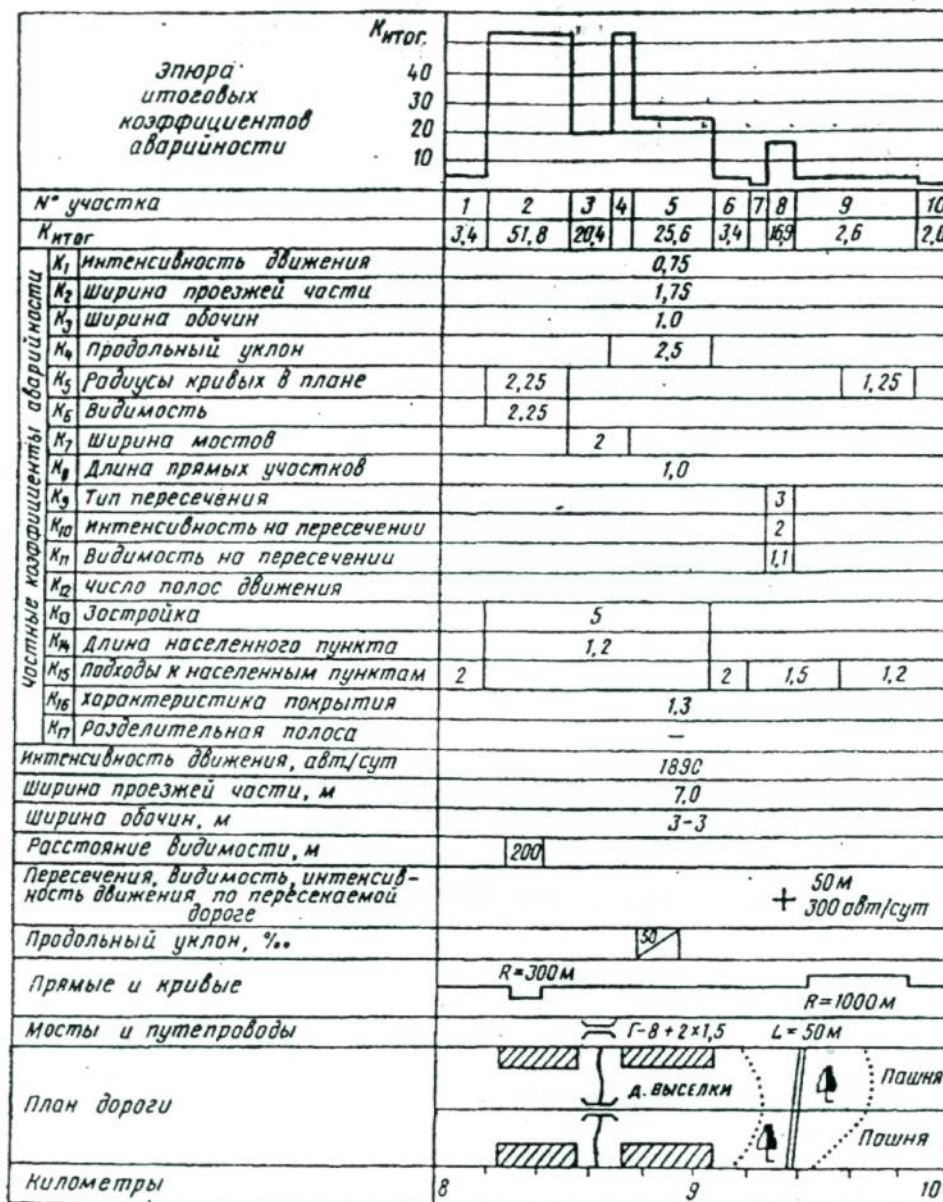 Kитог.
Эпюра
итоговых
коэффициентов
аварийности
40
30
20
10
N° участка 1 2 3 4 5 6 7 8 9 10
Kитог 3,4 51,8 20,4 25,6 3,4 16,9 2,6 2,0
Частные коэффициенты аварийности
K1 Интенсивность движения 0,75
K2 Ширина проезжей части 1,75
K3 Ширина обочин 1.0
K4 Продольный уклон 2,5
K5 Радиусы кривых в плане 2,25 1,25
K6 Видимость 2,25
K7 Ширина мостов 2
K8 Длина прямых участков 1,0
K9 Тип пересечения 3
K10 Интенсивность на пересечении 2
K11 Видимость на пересечении 1,1
K12 Число полос движения
K13 Застройка 5
K14 Длина населенного пункта 1,2
K15 Подходы к населенным пунктам 2 2 1,5 1,2
K16 Характеристика покрытия 1,3
K17 Разделительная полоса —
Интенсивность движения, авт./сут 1890
Ширина проезжей части, м 7,0
Ширина обочин, м 3-3
Расстояние видимости, м 200
Пересечения, видимость, интенсив-
ность движения по пересекаемой
дороге
50 м
300 авт/сут
Продольный уклон, ‰ 50
Прямые и кривые R=300м R=1000м
Мосты и путепроводы Г-8+2×1,5 L=50м
План дороги д. ВЫСЕЛКИ Пашня
Пашня
Километры 8 9 10